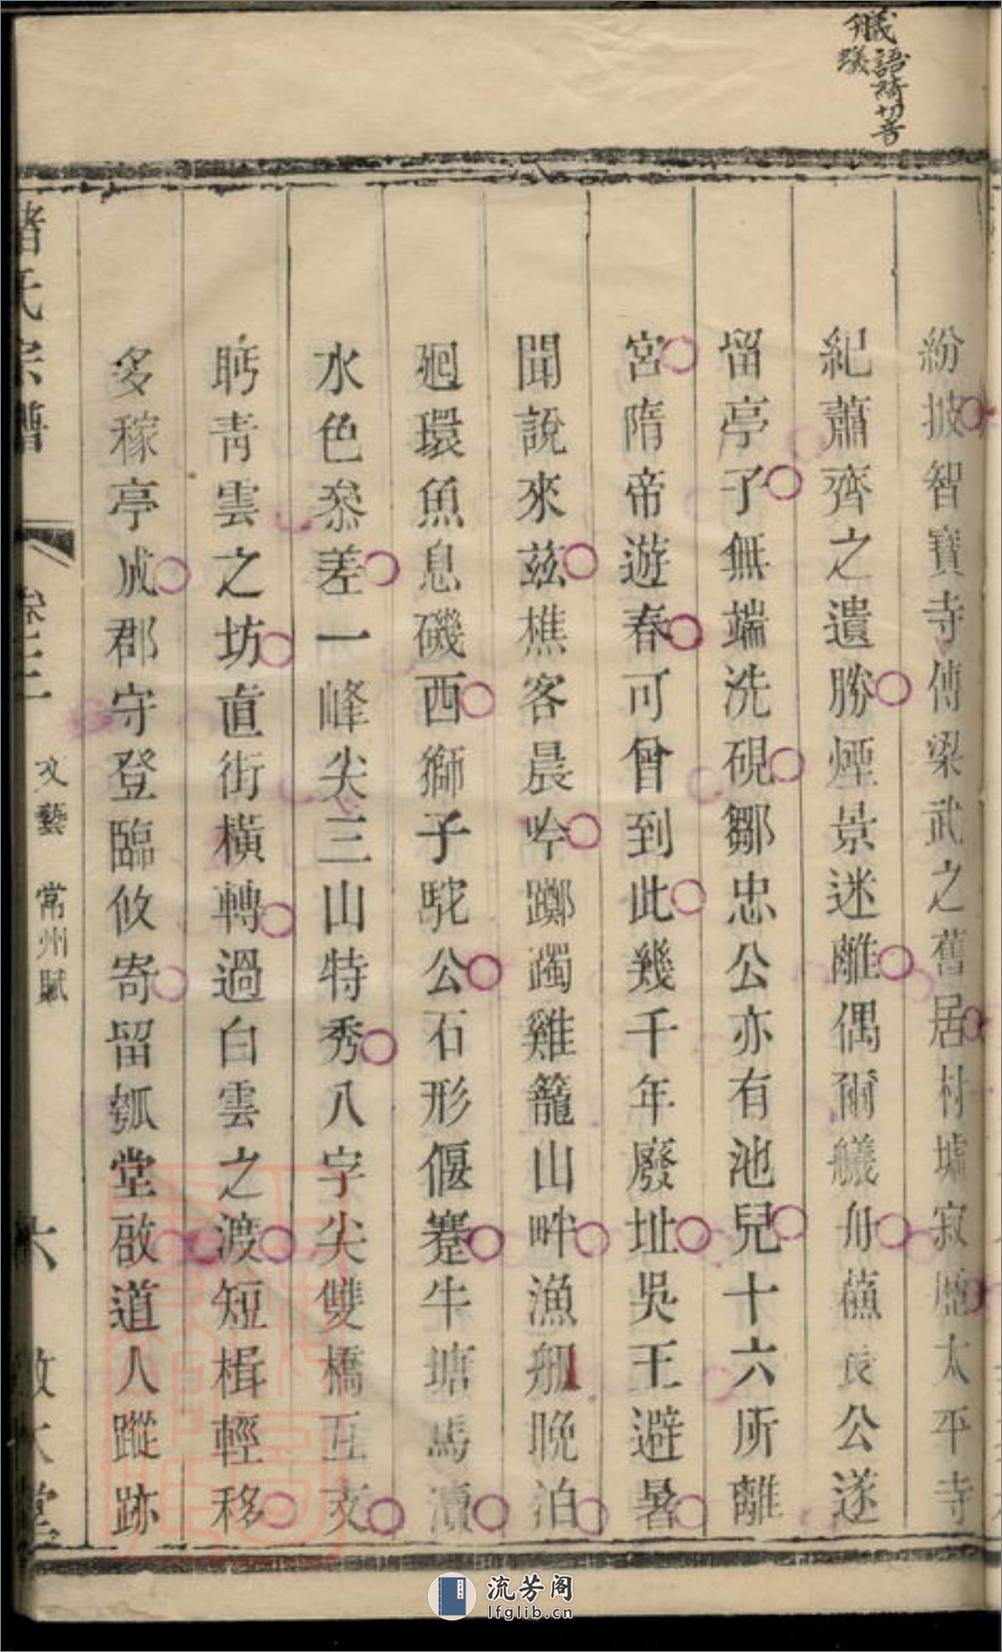 艤語綺切音
蟻
紛披智寶寺傳梁武之舊居村墟寂歷太平寺
紀蕭齊之遺勝煙景迷離偶爾艤舟蘇長公遂
留亭子無端洗硯鄒忠公亦有池兒十六所離
宮隋帝遊春可曾到此幾千年廢址吳王避暑
聞說來茲樵客晨吟躑躅雞籠山畔漁船晚泊
廻環魚息磯西獅子駝公石形偃蹇牛塘馬瀆
水色叅差一峰尖三山特秀八字尖雙橋互交
眄青雲之坊直街橫轉過白雲之渡短楫輕移
多稼亭成郡守登臨攸寄留瓠堂啟道人蹤跡
氏宗譜 卷三 文藝 常州賦 六 大堂
流芳阁
lfglib.cn